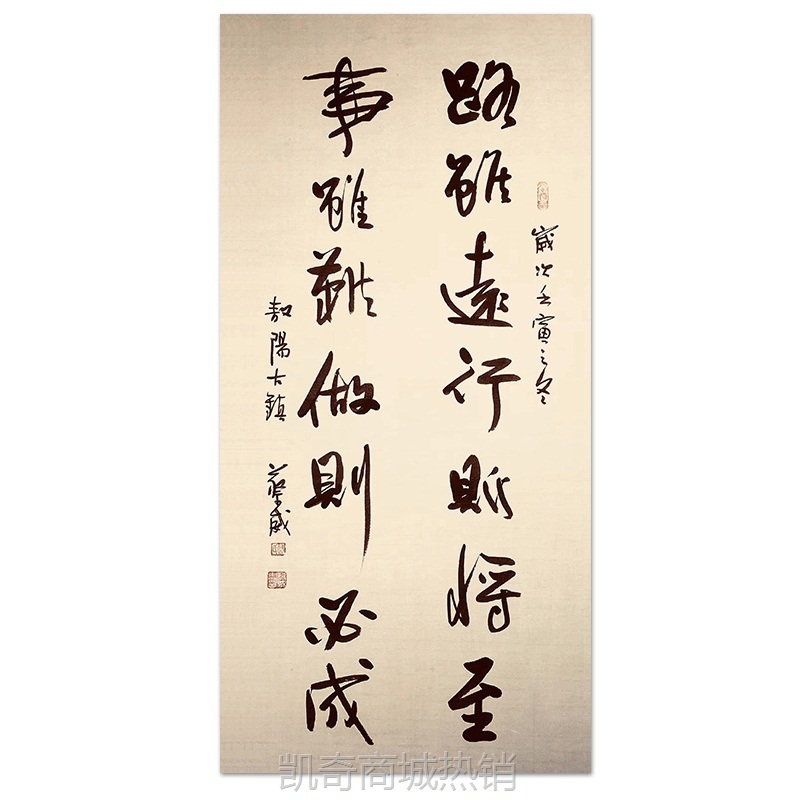 歲次壬寅之冬
路雖遠行則將至
事雖難做則必成
陽古鎮
威
凯奇商城热销